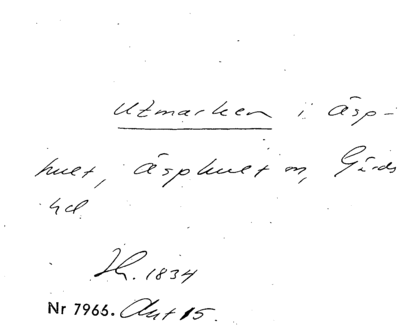 Utmarken i Äsp-
hult, Äsphult sn, Gärds
hd.
Th. 1834
Nr 7966. Akt 15.